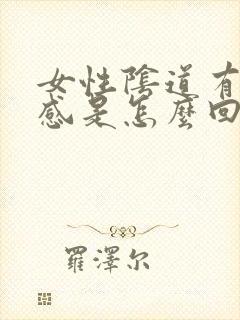 女性陰道有
感是怎麼回
羅澤尔